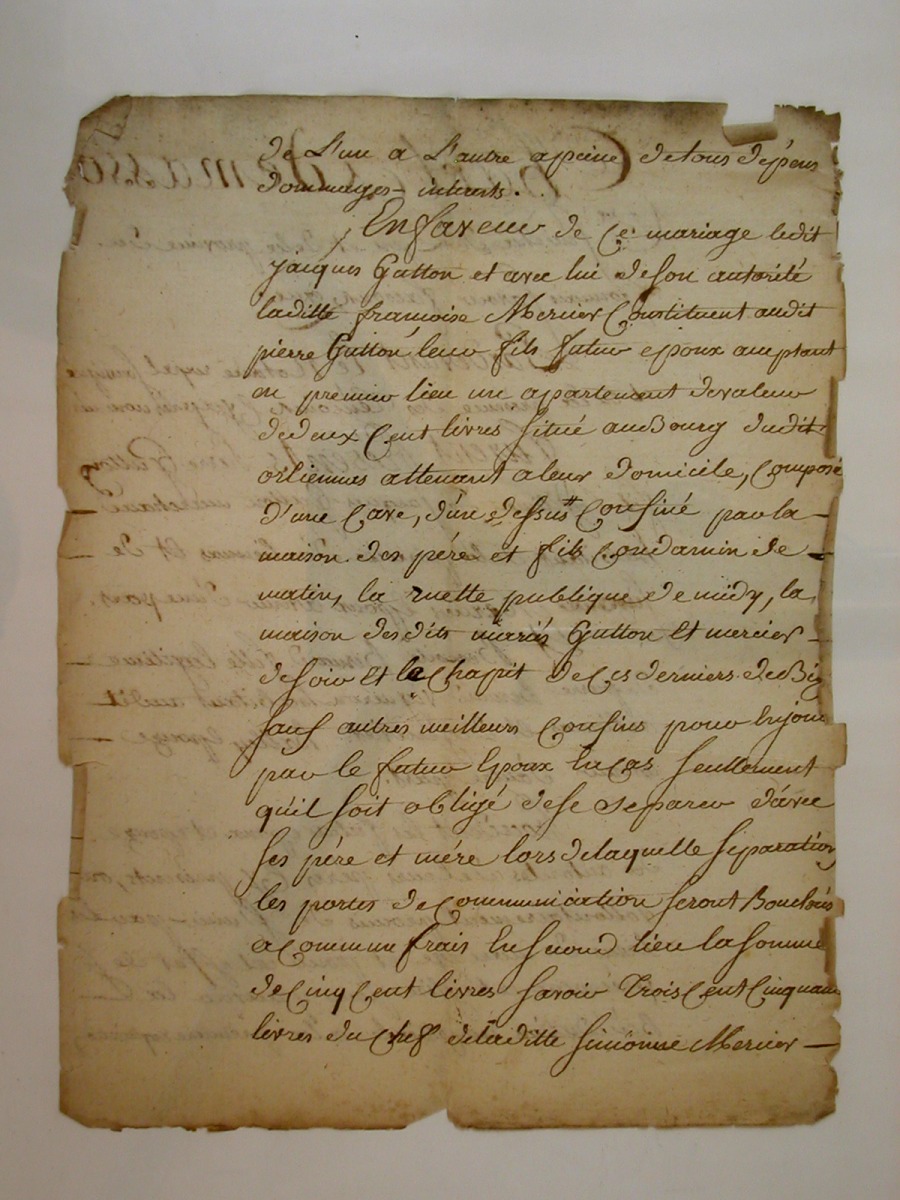 de L'un a L'autre apeine detous dépens
dommages-interets.
En faveur de Ce mariage ledit
jacques Gutton et avec lui deson autorité
laditte francoise Mercier Constituent audit
pierre Gutton leur fils futur epoux acceptant
en premier lieu un apartement devaleur
dedeux Cent livres situé auBourg dudit
orliennas attenant aleur domicile, Composé
d'une Cave, d'un dessus Confiné par la
maison des pére et fils Condamin de
matin, la ruette publique de midy, la
maison desdits mariés Gutton Et mercier
desoir Et le Chapit de Ces derniers deBiz
sauf autres meilleurs Confins pour Enjouir
par le futur Epoux En Cas seullement
qu'il soit obligé dese separer d'avec
ses pére et mére lors delaquelle séparation
les portes de Communication seront Bouchées
a Commun frais En second lieu la somme
de Cinq Cent livres savoir trois Cent Cinquante
livres du Chef delàditte Mercier